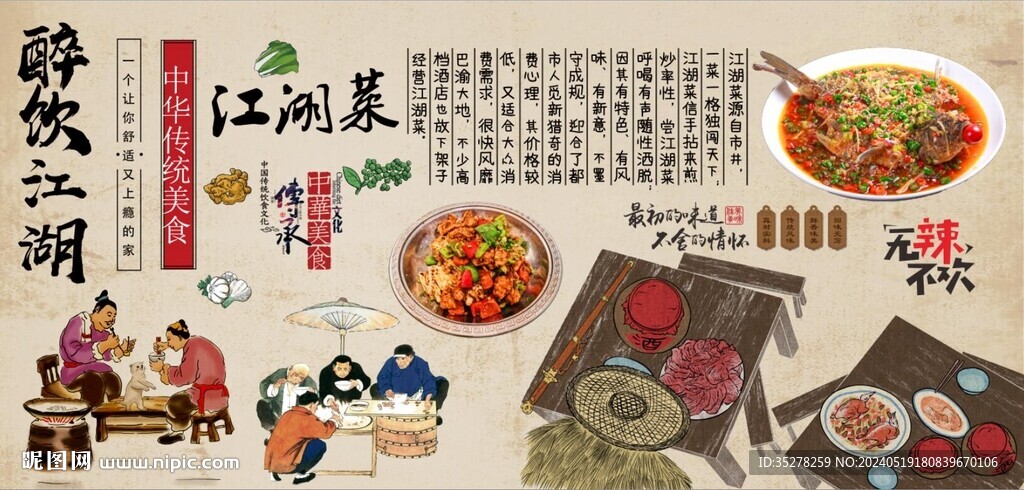 醉饮江湖
一个让你舒·适·又上瘾的家
中华传统美食
江湖菜
中国传统饮食文化
传承
中華美食
文化
江湖菜源自市井，
一菜一格独闯天下；
江湖菜信手拈来煎
炒率性，尝江湖菜
呼喝有声随性洒脱；
因其有特色、有风
味、有新意，不墨
守成规，迎合了都
市人觅新猎奇的消
费心理，其价格较
低，又适合大众消
费需求，很快风靡
巴渝大地，不少高
档酒店也放下架子
经营江湖菜。
最初的味道
不舍的情怀
真材实料
传统风味
鲜香味美
「无辣，
不欢」
酒
昵图网 www.nipic.com
ID:35278259 NO:20240519180839670106